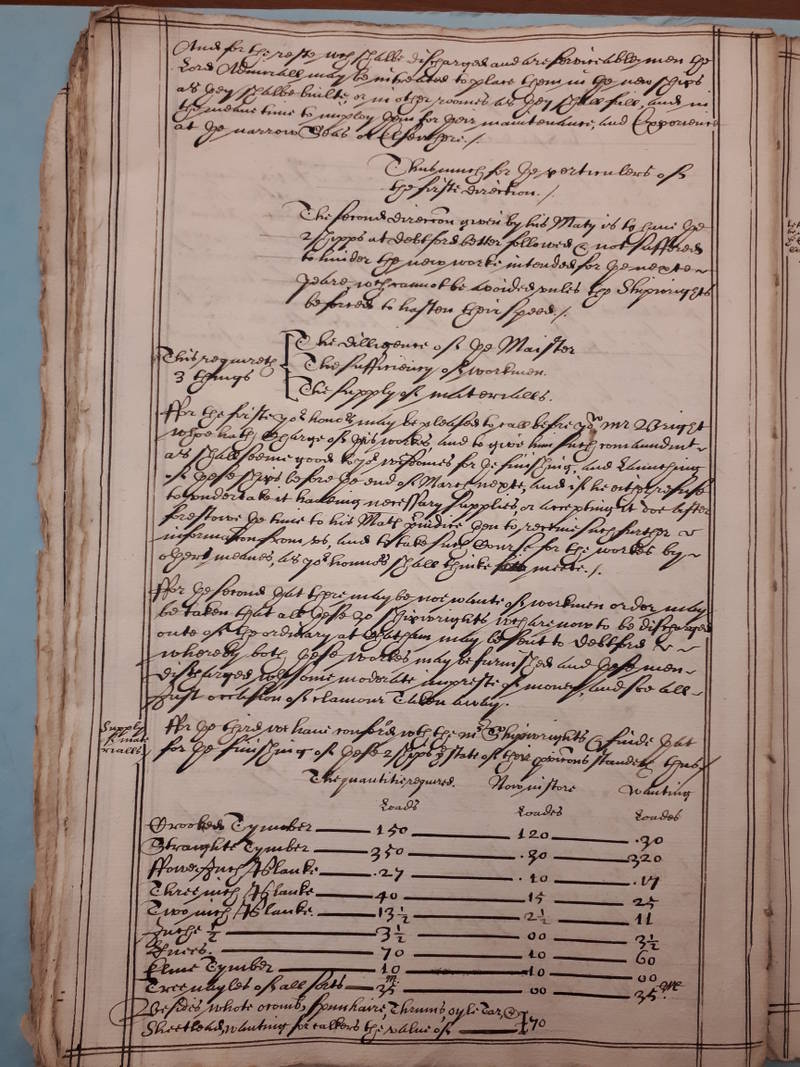 And for the reste wch shalbe discharged and are serviceable men the
Lord Admirall may be intreated to place them in the new ships
as they shalbe builte, or in other roomes as they shall fall, and in
the meane time to imploy them for their maintenance, and Experience
at the narrow Seas or Elsewhere ./.
Thus much for the perticulers of
the firste direction ./
The second direccon given by his Maty is to have the
2 shipps at Debtford better followed & not suffered
to hinder the new worke intended for the nexte
yeare, wch cannot be avoided unles the Shipwrights
be forced to hasten their speed ./.
This requireth
3 things
The dilligence of the Maister
The sufficiency of workmen.
The supply of materialls.
ffor the firste yor honors may be pleased to call before you Mr Wright
whoe hath Charge of this workes, and to give him such comaundmt
as shall seeme good to yor wisdomes for the finishing, and Launching
of these ships before the end of Marche nexte, and if he either refuse
to undertake it haveing necessary supplies, or accepting it doe after
foreslowe the time to his Mats preiudice then to receive such further
information from us, and to take such Course for the workes by
others meanes, as yor honnors shall thinke meete ./.
ffor the second that there may be noe wante of workmen order may
be taken that all these 30 shipwrights wch are now to be discharged
oute of the ordinary at Chatham may be sent to Debtford
whereby both these workes may be furnished and these men
discharged wth some moderate impreste of money, and soe all
Just occasion of clamour Taken away.
Supply
of mate
rialls
ffor the third we have conferd wth the mr Shipwrights & finde that
for the finishing of these 2 shipps the state of their provicons standeth thus/
The quantitie required. Now in store Wanting
Loads Loades Loades
Crooked Tymber 150 120 .30
Straughte Tymber 350 .30 320
ffowre Inch Planke .27 .10 .17
Three inch Planke 40 15 25
Two inch Planke 13½ 2½ 11
Inche ½ 3½ 00 3½
Knees. 70 10 60
Elme Tymber 10 10 00
Treenayles of all sorts 35m 00 35m
Besides whote ocomb, spunhaire, Thrums, oyle Tar, &
Sheetlead, wanting for calkers the value of £70